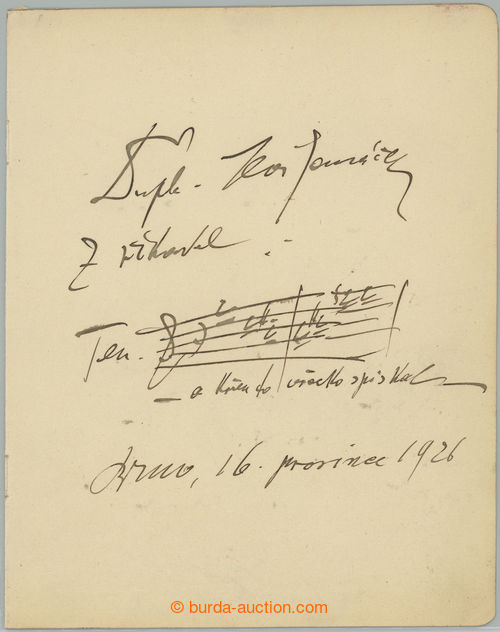 DrPh. Leoš Janáček
Z Říkadel :
Ten.
– a křen to všecko spískal –
Brno, 16. prosince 1926
© burda-auction.com